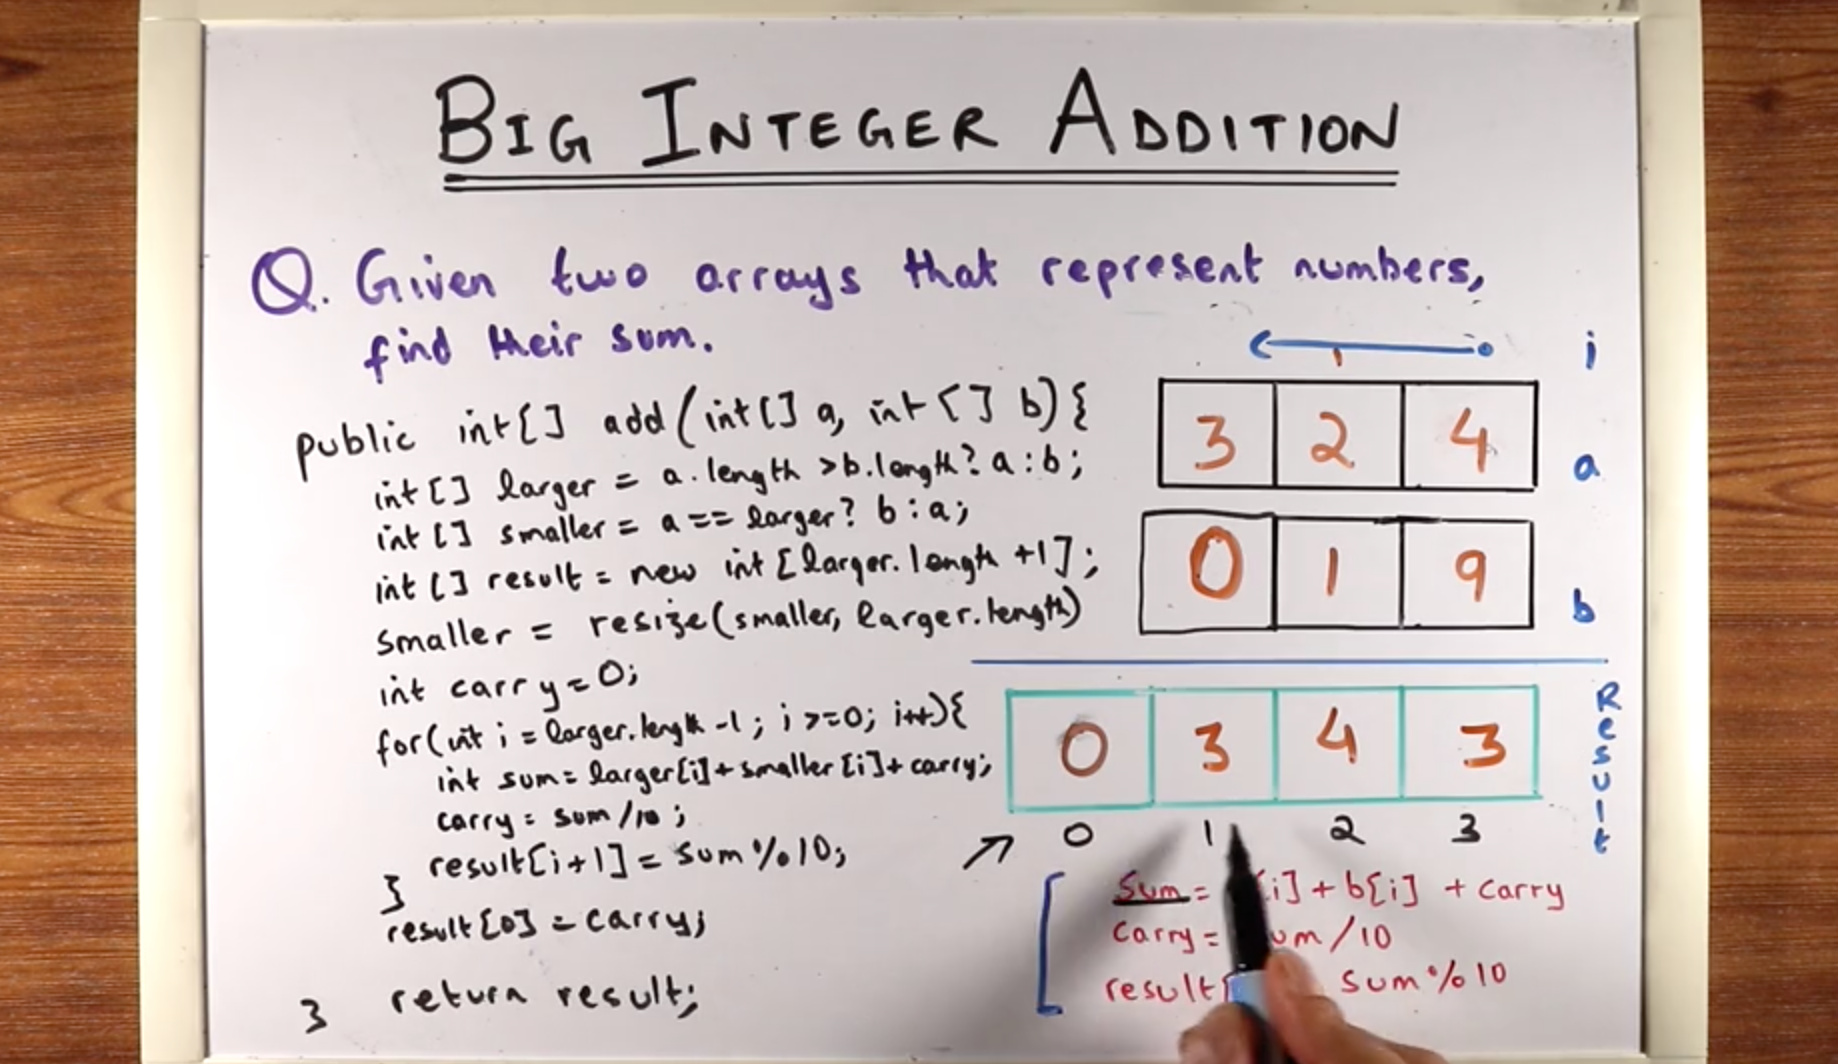 BIG INTEGER ADDITION
Q. Given two arrays that represent numbers,
find their sum.
public int[] add(int[] a, int[] b){
int[] larger = a.length >b.length? a:b;
int[] smaller = a == larger? b:a;
int[] result = new int[larger.length +1];
smaller = resize(smaller, larger.length)
int carry=0;
for(int i = larger.length -1; i >=0; i++){
int sum = larger[i]+smaller[i]+carry;
carry = sum/10;
result[i+1] = sum%10;
}
result[0] = carry;
return result;
}
i
3 2 4
a
0 1 9
b
0 3 4 3
Result
0 1 2 3
Sum = [i] + b[i] + carry
carry = um/10
result[ sum%10